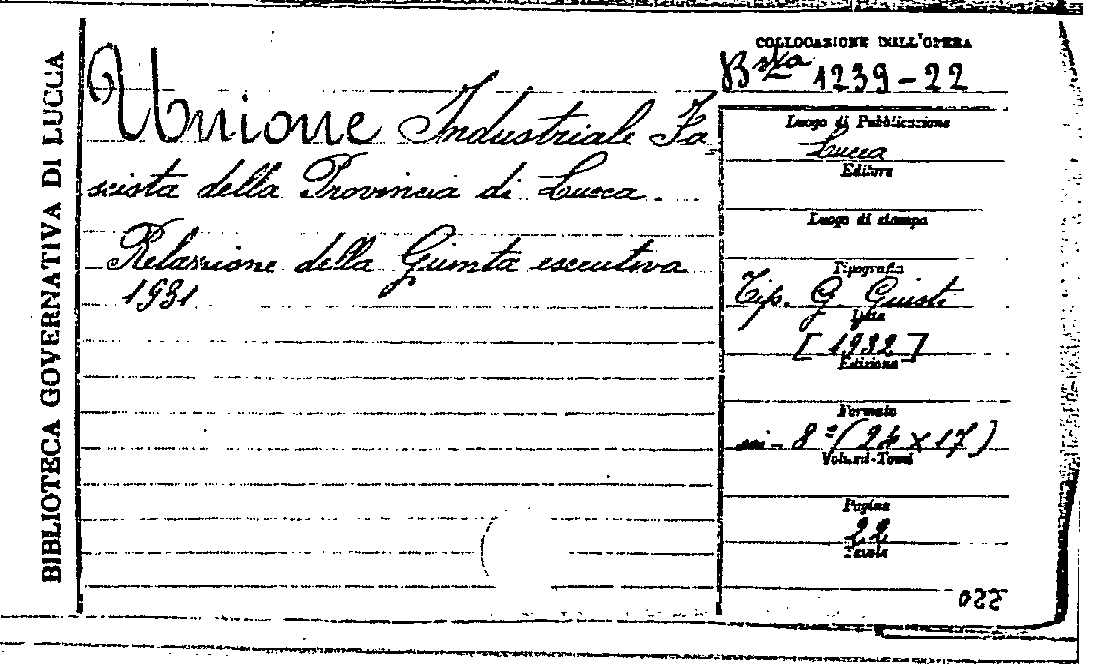 BIBLIOTECA GOVERNATIVA DI LUCCA
Unione Industriale Fa-
scista della Provincia di Lucca.
Relazione della Giunta esecutiva
1931
COLLOCAZIONE DELL'OPERA
Bsta 1239-22
Luogo di Pubblicazione
Lucca
Editore
Luogo di stampa
Tipografia
Tip. G. Giusti
Data
[1932]
Edizione
Formato
in-8º (24x17)
Volumi-Tomi
Pagine
22
Tavole
022